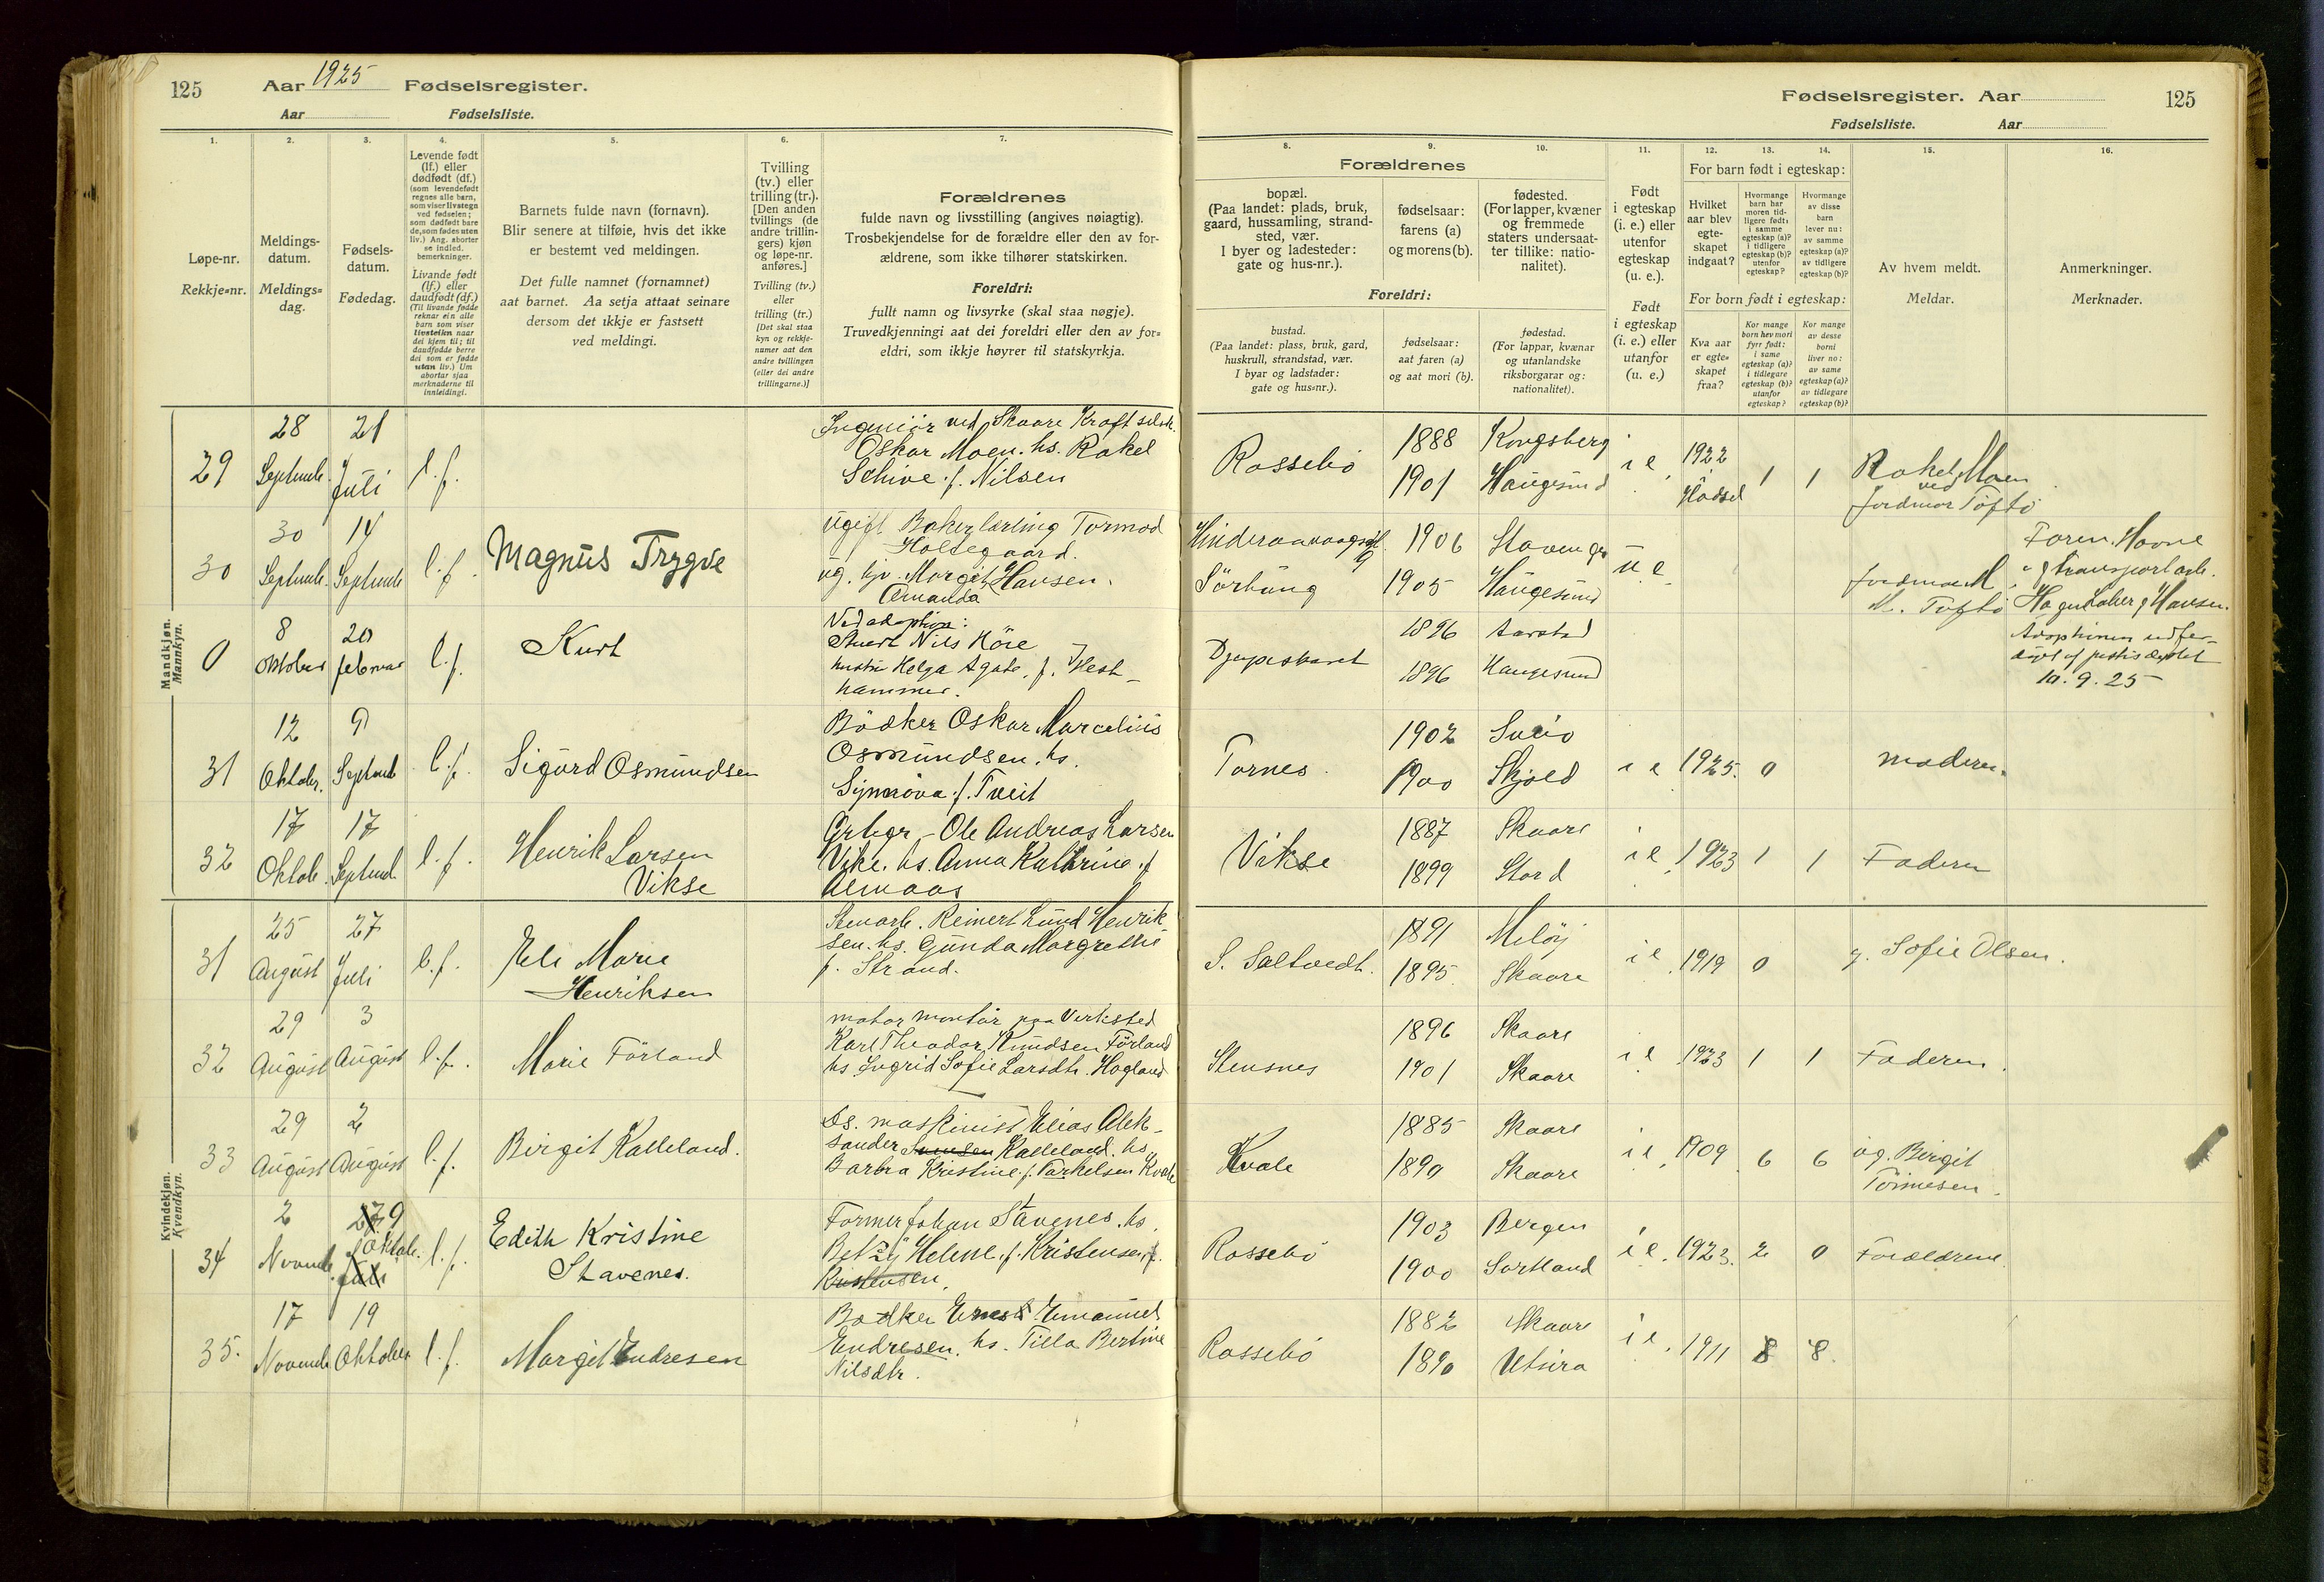 125 Aar 1925 Fødselsregister.
Aar Fødselsliste.
Fødselsregister. Aar 125
Fødselsliste. Aar
1. 2. 3. 4. 5. 6. 7.
Løpe-nr.
Rekkje=nr.
Meldings-
datum.
Meldings=
dag.
Fødsels-
datum.
Fødedag.
Levende født
(lf.) eller
dødfødt (df.)
(som levendefødt
regnes alle barn,
som viser livstegn
ved fødselen;
som dødfødt bare
de, som fødes uten
liv.) Ang. aborter
se indled.
bemerkninger.
Livande født
(lf.) eller
daudfødt (df.)
(Til livande fødde
reknar ein alle
barn som viser
livsteikn naar
dei kjem til; til
daudfødde berre
dei som er fødde
utan liv.) Um
abortar sjaa
merknaderne til
innleidingi.
Barnets fulde navn (fornavn).
Blir senere at tilføie, hvis det ikke
er bestemt ved meldingen.
Det fulle namnet (fornamnet)
aat barnet. Aa setja attaat seinare
dersom det ikkje er fastsett
ved meldingi.
Tvilling
(tv.) eller
trilling (tr.).
[Den anden
tvillings (de
andre trillin-
gers) kjøn
og løpe-nr.
anføres.]
Tvilling (tv.)
eller
trilling (tr.)
[Det skal staa
kyn og rekkje-
numer aat den
andre tvillingen
(eller dei andre
trillingarne.)]
Forældrenes
fulde navn og livsstilling (angives nøiagtig).
Trosbekjendelse for de forældre eller den av for-
ældrene, som ikke tilhører statskirken.
Foreldri:
fullt namn og livsyrke (skal staa nøgje).
Truvedkjenningi aat dei foreldri eller den av for=
eldri, som ikkje høyrer til statskyrkja.
8. 9. 10. 11. 12. 13. 14. 15. 16.
Forældrenes
bopæl.
(Paa landet: plads, bruk,
gaard, hussamling, strand-
sted, vær.
I byer og ladesteder:
gate og hus-nr.).
fødselsaar:
farens (a)
og morens (b).
fødested.
(For lapper, kvæner
og fremmede
staters undersaat-
ter tillike: natio-
nalitet).
Foreldri:
bustad.
(Paa landet: plass, bruk, gard,
huskrull, strandstad, vær.
I byar og ladstader:
gate og hus=nr.).
fødselsaar:
aat faren (a)
og aat mori (b).
fødestad.
(For lappar, kvænar
og utanlandske
riksborgarar og:
nationalitet).
Født
i egteskap
(i. e.) eller
utenfor
egteskap
(u. e.).
Født
i egteskap
(i. e.) eller
utanfor
(u. e.)
For barn født i egteskap:
Hvilket
aar blev
egte-
skapet
indgaat?
Hvormange
barn har
moren tid-
ligere født:
i samme
egteskap (a)?
i tidligere
egteskap (b)?
utenfor
egteskap?
Hvormange
av disse
barn
lever nu:
av samme
egteskap (a)?
av tidligere
egteskap (b)?
For born født i egteskap:
Kva aar
er egte=
skapet
fraa?
Kor mange
born hev mori
fyrr født:
i same
egteskap (a)?
i tidlegare
egteskap (b)?
utanfor
egteskap?
Kor mange
av desse
borni
liver no:
av same
egteskap (a)?
av tidlegare
egteskap (b)?
Av hvem meldt.
Meldar.
Anmerkninger.
Merknader.
Mandkjøn.
Mannkyn.
29 28 Septemb. 21 Juli l.f.
Ingeniör ved Skaare Kraftselsk.
Oskar Moen. hs. Rakel
Schive f. Nilsen
Rossebö 1888 Kongsberg
1901 Haugesund i e 1922 Hadsel 1 1 Rakel Moen
ved
jordmor Töftö
30 30 Septemb. 14 Septemb l.f. Magnus Trygve
Ugift Bakerlærling Tormod
Holtegaard.
ug. tjp. Margit Hansen.
Amanda
1906 Stavanger
Sörhaug 1905 Haugesund u e
jordmor M.
M. Töftö
0 8 Oktober 20 februar l.f. Kurt
Ved adoption:
Stuert Nils Höie
hustru Helga Agate, f. Hest-
hammer.
Djupaskaret 1896 Aarstad
1896 Haugesund
10.9.25
31 12 Oktober. 9 Septemb l.f. Sigurd Osmundsen
Bödker Oskar Marcelius
Osmundsen. hs.
Synnöva f. Tveit
Tornes. 1902 Sveio
1900 Skjold i e 1925. 0 moderen.
32 17 Oktob. 17 Septemb. l.f. Henrik Larsen
Vikse
Grbgr. Ole Andreas Larsen
Vike. hs. Anna Kathrine f
Almaas
Vikse 1887 Skaare
1899 Stord i e 1923 1 1 Faderen
Kvindekjøn.
Kvendkyn.
31 25 August 27 Juli l.f. Eli Marie
Henriksen
Stenarb. Reinert Lund Henrik
sen. hs. Gunda Margrethe
f. Strand.
S. Saltvedt. 1891 Melöy
1895 Skaare i e 1919 0 g. Sofie Olsen.
32 29 August 3 August l.f. Marie Förland
motor montör paa Verksted
Karl Theodor Knudsen Förland
hs Ingrid Sofie Larsdtr. Hagland
Stensnes 1896 Skaare
1901 Skaare i e 1923 1 1 Faderen.
33 29 August 2 August l.f. Birgit Kalleland.
Ds. maskinist Elias Alek-
sander Kalleland. hs
Barbra Kristine f. Torkelsen Kvale
Kvale 1885 Skaare
1890 Skaare i e. 1909 6 6 ug. Birgit
Tönnesen.
34 2 Novemb. 27 9 Oktob. Juli l.f. Edith Kristine
Stavenes.
Former Johan Stavenes. hs.
Betzy Helene f. Kristensen f.
Kristensen.
Rossebö 1903 Bergen
1900 Sortland i e. 1923. 2 0 Forældrene.
35. 17 Novemb 19 Oktober l.f. Margit Endresen
Bødker Ernest Emanuel
Endresen. hs. Tilla Bertine
Nilsdtr.
Rossebö 1882 Skaare
1890 Utsira i e. 1911 8 8.